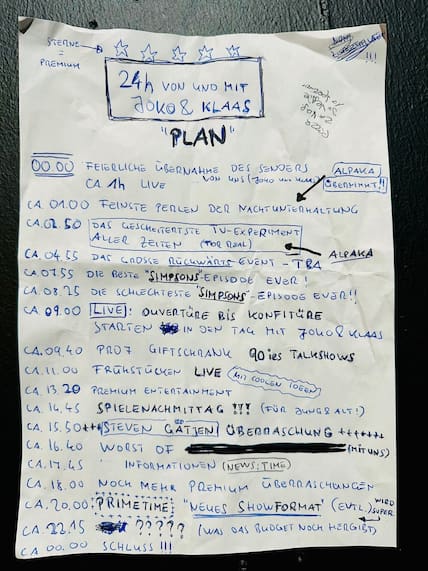 STERNE
= PREMIUM
24h VON UND MIT
JOKO & KLAAS
"PLAN"
00.00 FEIERLICHE ÜBERNAHME DES SENDERS
VON UNS (JOKO UND KLAAS)
CA 1h LIVE
ALPAKA
ÜBERNIMMT!!
CA. 01.00 FEINSTE PERLEN DER NACHTUNTERHALTUNG
CA. 02.50 DAS GESCHEITERTSTE TV-EXPERIMENT
ALLER ZEITEN (FOR REAL)
ALPAKA
CA. 04.55 DAS GROSSE RÜCKWÄRTS EVENT - TBA
CA. 07.55 DIE BESTE "SIMPSONS"-EPISODE EVER!
CA. 08.25 DIE SCHLECHTESTE "SIMPSONS"-EPISODE EVER!!
CA. 09.00 LIVE: OUVERTÜRE BIS KONFITÜRE
STARTEN IN DEN TAG MIT JOKO & KLAAS
CA. 09.40 PRO7 GIFTSCHRANK 90ies TALKSHOWS
CA. 11.00 FRÜHSTÜCKEN LIVE MIT COOLEN IDEEN
CA. 13.20 PREMIUM ENTERTAINMENT
CA. 14.45 SPIELENACHMITTAG !!! (FÜR JUNG & ALT!)
CA. 15.50 +++ STEVEN GÄTJEN ÜBERRASCHUNG +++++++
CA. 16.40 WORST OF (MIT UNS)
CA. 17.45 INFORMATIONEN (NEWS:TIME)
CA. 18.00 NOCH MEHR PREMIUM ÜBERRASCHUNGEN
CA. 20.00 PRIMETIME "NEUES SHOWFORMAT" (EVTL.) WIRD SUPER
CA. 22.15 ????? (WAS DAS BUDGET NOCH HERGIBT)
CA. 00.00 SCHLUSS !!!